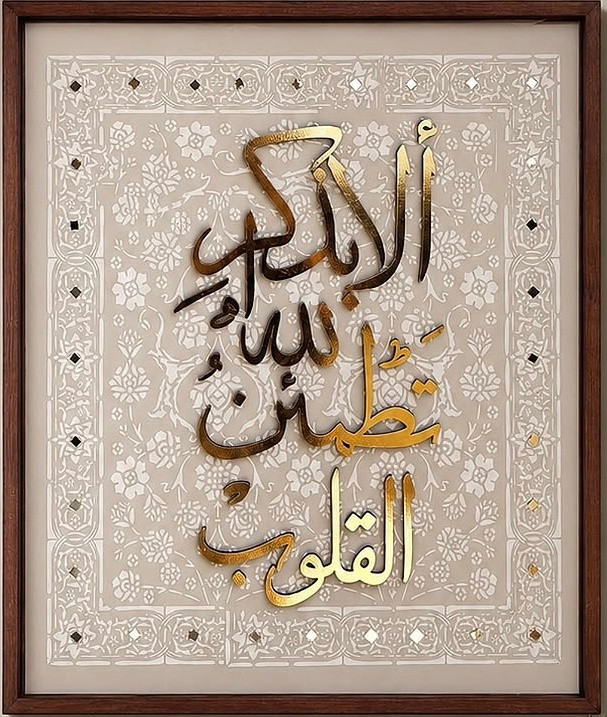 ألا بذكرِ
اللهِ
تَطْمَئنُ
القلوبْ